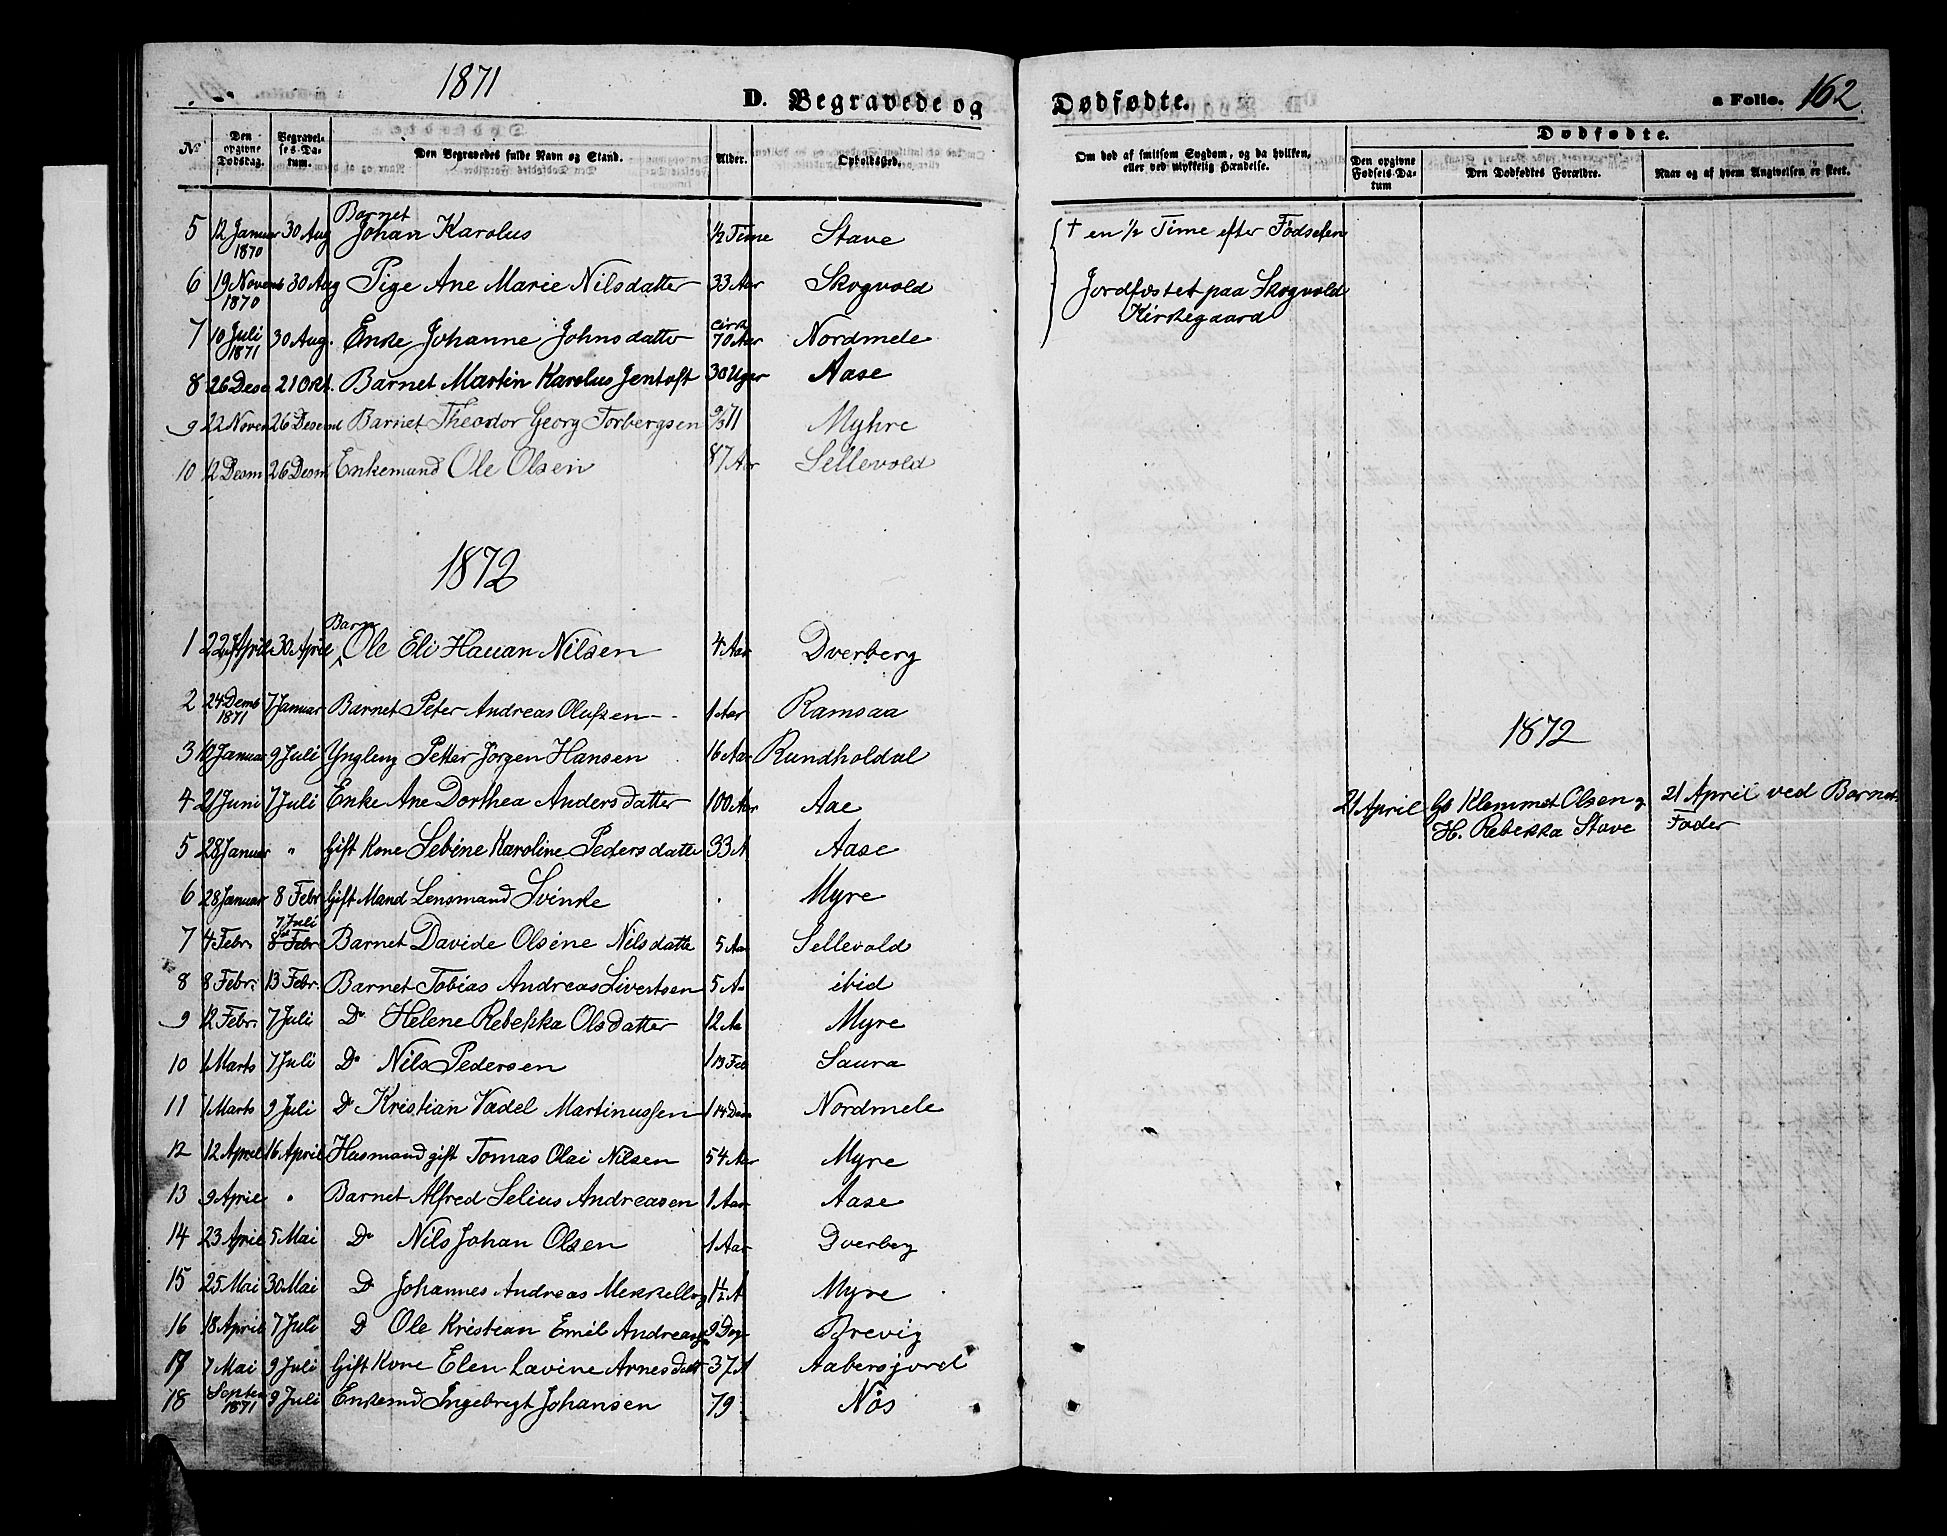 1871
D. Begravede og Dødfødte.
a Folio. 162
No
Den opgivne Dødsdag.
Begravelses-Datum.
Den Begravedes fulde Navn og Stand.
Alder.
Opholdssted.
Om død af smitsom Sygdom, og da hvilken, eller ved ulykkelig Hændelse.
Dødfødte.
Den opgivne Fødsels-Datum
Den Dødfødtes Forældre.
Naar og af hvem Angivelsen er skeet.
5 12 Januar 1870 30 Aug Barnet Johan Karolus 1/2 Time Stave † en 1/2 Time efter Fødselen
6 19 Novemb 1870 30 Aug Pige Ane Marie Nilsdatter 33 Aar Skogvold Jordfæstet paa Skogvold Kirkegaard
7 10 Juli 1871 30 Aug. Enke Johanne Johnsdatter cirka 70 Aar Nordmele
8 26 Dese 21 Okt. Barnet Martin Karolus Jentoft 30 Uger Aase
9 22 Novem 26 Desem Barnet Theodor Georg Torbergsen 9/3 71 Myhre
10 12 Desm 26 Desm Enkemand Ole Olsen 87 Aar Sellevold
1872
1 22 April 30 April Barn Ole Eli Hauan Nilsen 4 Aar Dverberg
2 24 Demb 1871 7 Januar Barnet Peter Andreas Olufsen 1 Aar Ramsaa
1872
3 10 Januar 9 Juli Yngling Petter Jørgen Hansen 16 Aar Rundholdal
4 21 Juni 7 Juli Enke Ane Dorthea Andersdatter 100 Aar Aae 21 April Gb Klemmet Olsen og H. Rebekka Stave 21 April ved Barnets Fader
5 28 Januar " Gift Kone Sebine Karoline Pedersdatte 33 A Aase
6 28 Januar 8 Febr Gift Mand Lensmand Svinke . Myre
7 4 Febr. 7 Juli 8de Febr Barnet Davide Olsine Nilsdatte 5 Aar Sellevold
8 8 Febr. 13 Febr. Barnet Tobias Andreas Sivertsen 5 A ibid
9 12 Febr. 7 Juli Do Helene Rebekka Olsdatter 12 Aa Myre
10 1 Marts 7 Juli Do Nils Pedersen 1 13 Feb Saura
11 1 Marts 9 Juli Do Kristian Vadel Martinussen 1 14 Nordmele
12 12 April 16 April Husmand gift Tomas Olai Nilsen 54 Aar Myre
13 9 April " Barnet Alfred Selius Andreasen 1 Aar Aase
14 23 April 5 Mai Do Nils Johan Olsen 1 Aar Dverberg
15 25 Mai 30 Mai Do Johannes Andreas 1 1/2 A Myre
16 18 April 7 Juli D Ole Kristian Emil Andreasen 9 Dage Brevig
17 7 Mai 9 Juli Gift Kone Elen Lavine Arnesdatt 37 A Aabersjord
18 Septem 1871 9 Juli Enkemd Ingebrigt Johansen 79 Nøs